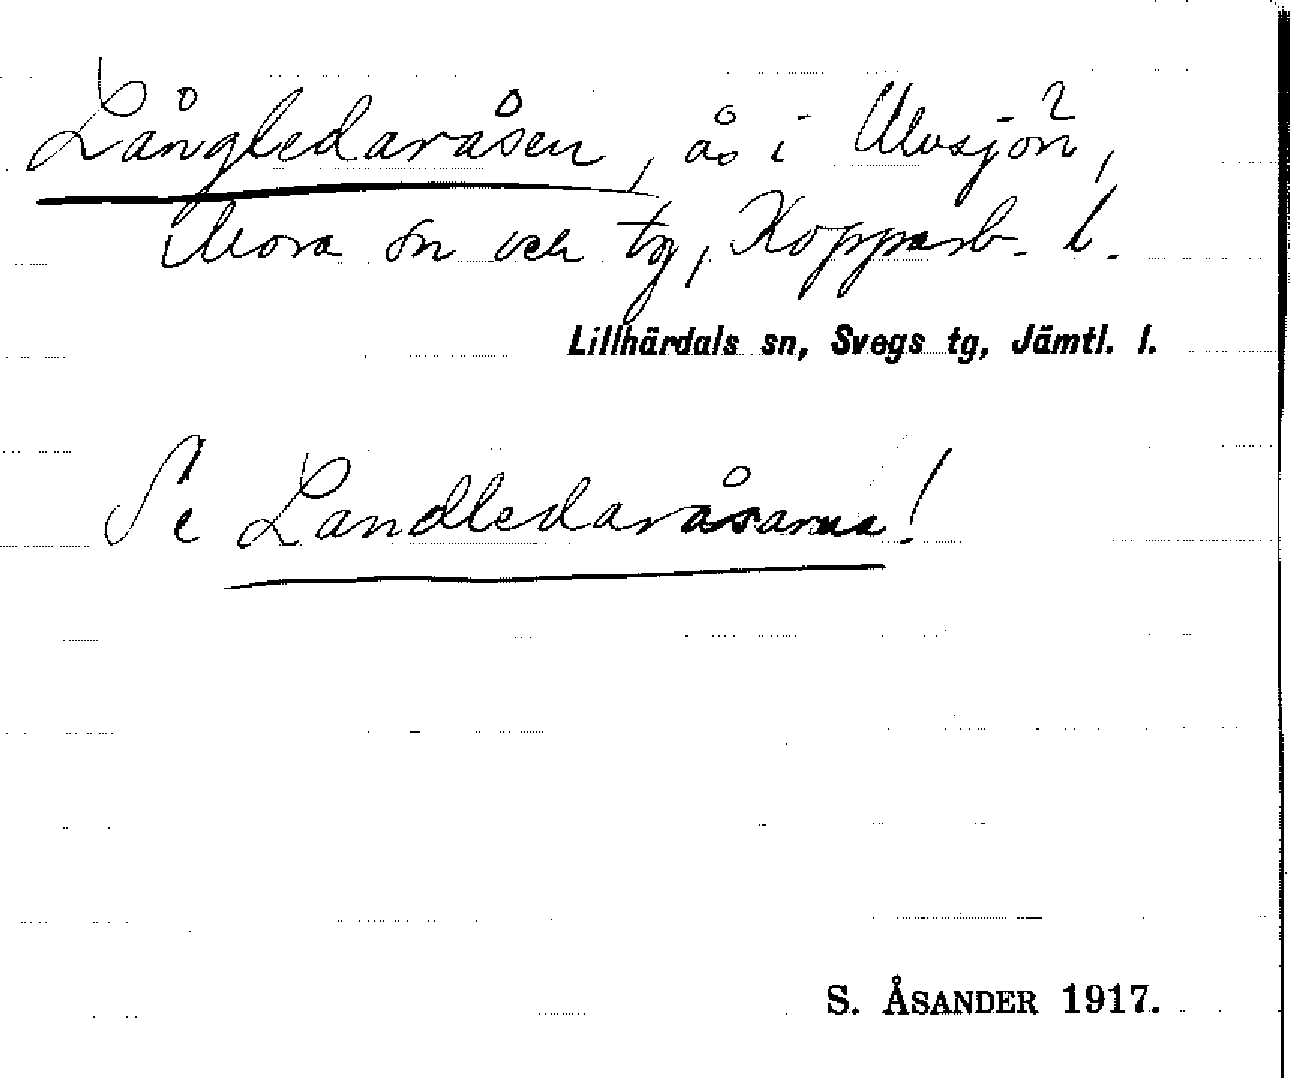 Långledaråsen, ås i Ulvsjön,
Mora sn och tg, Kopparb. l.
Lillhärdals sn, Svegs tg, Jämtl. l.
Se Landledaråsarna!
S. ÅSANDER 1917.